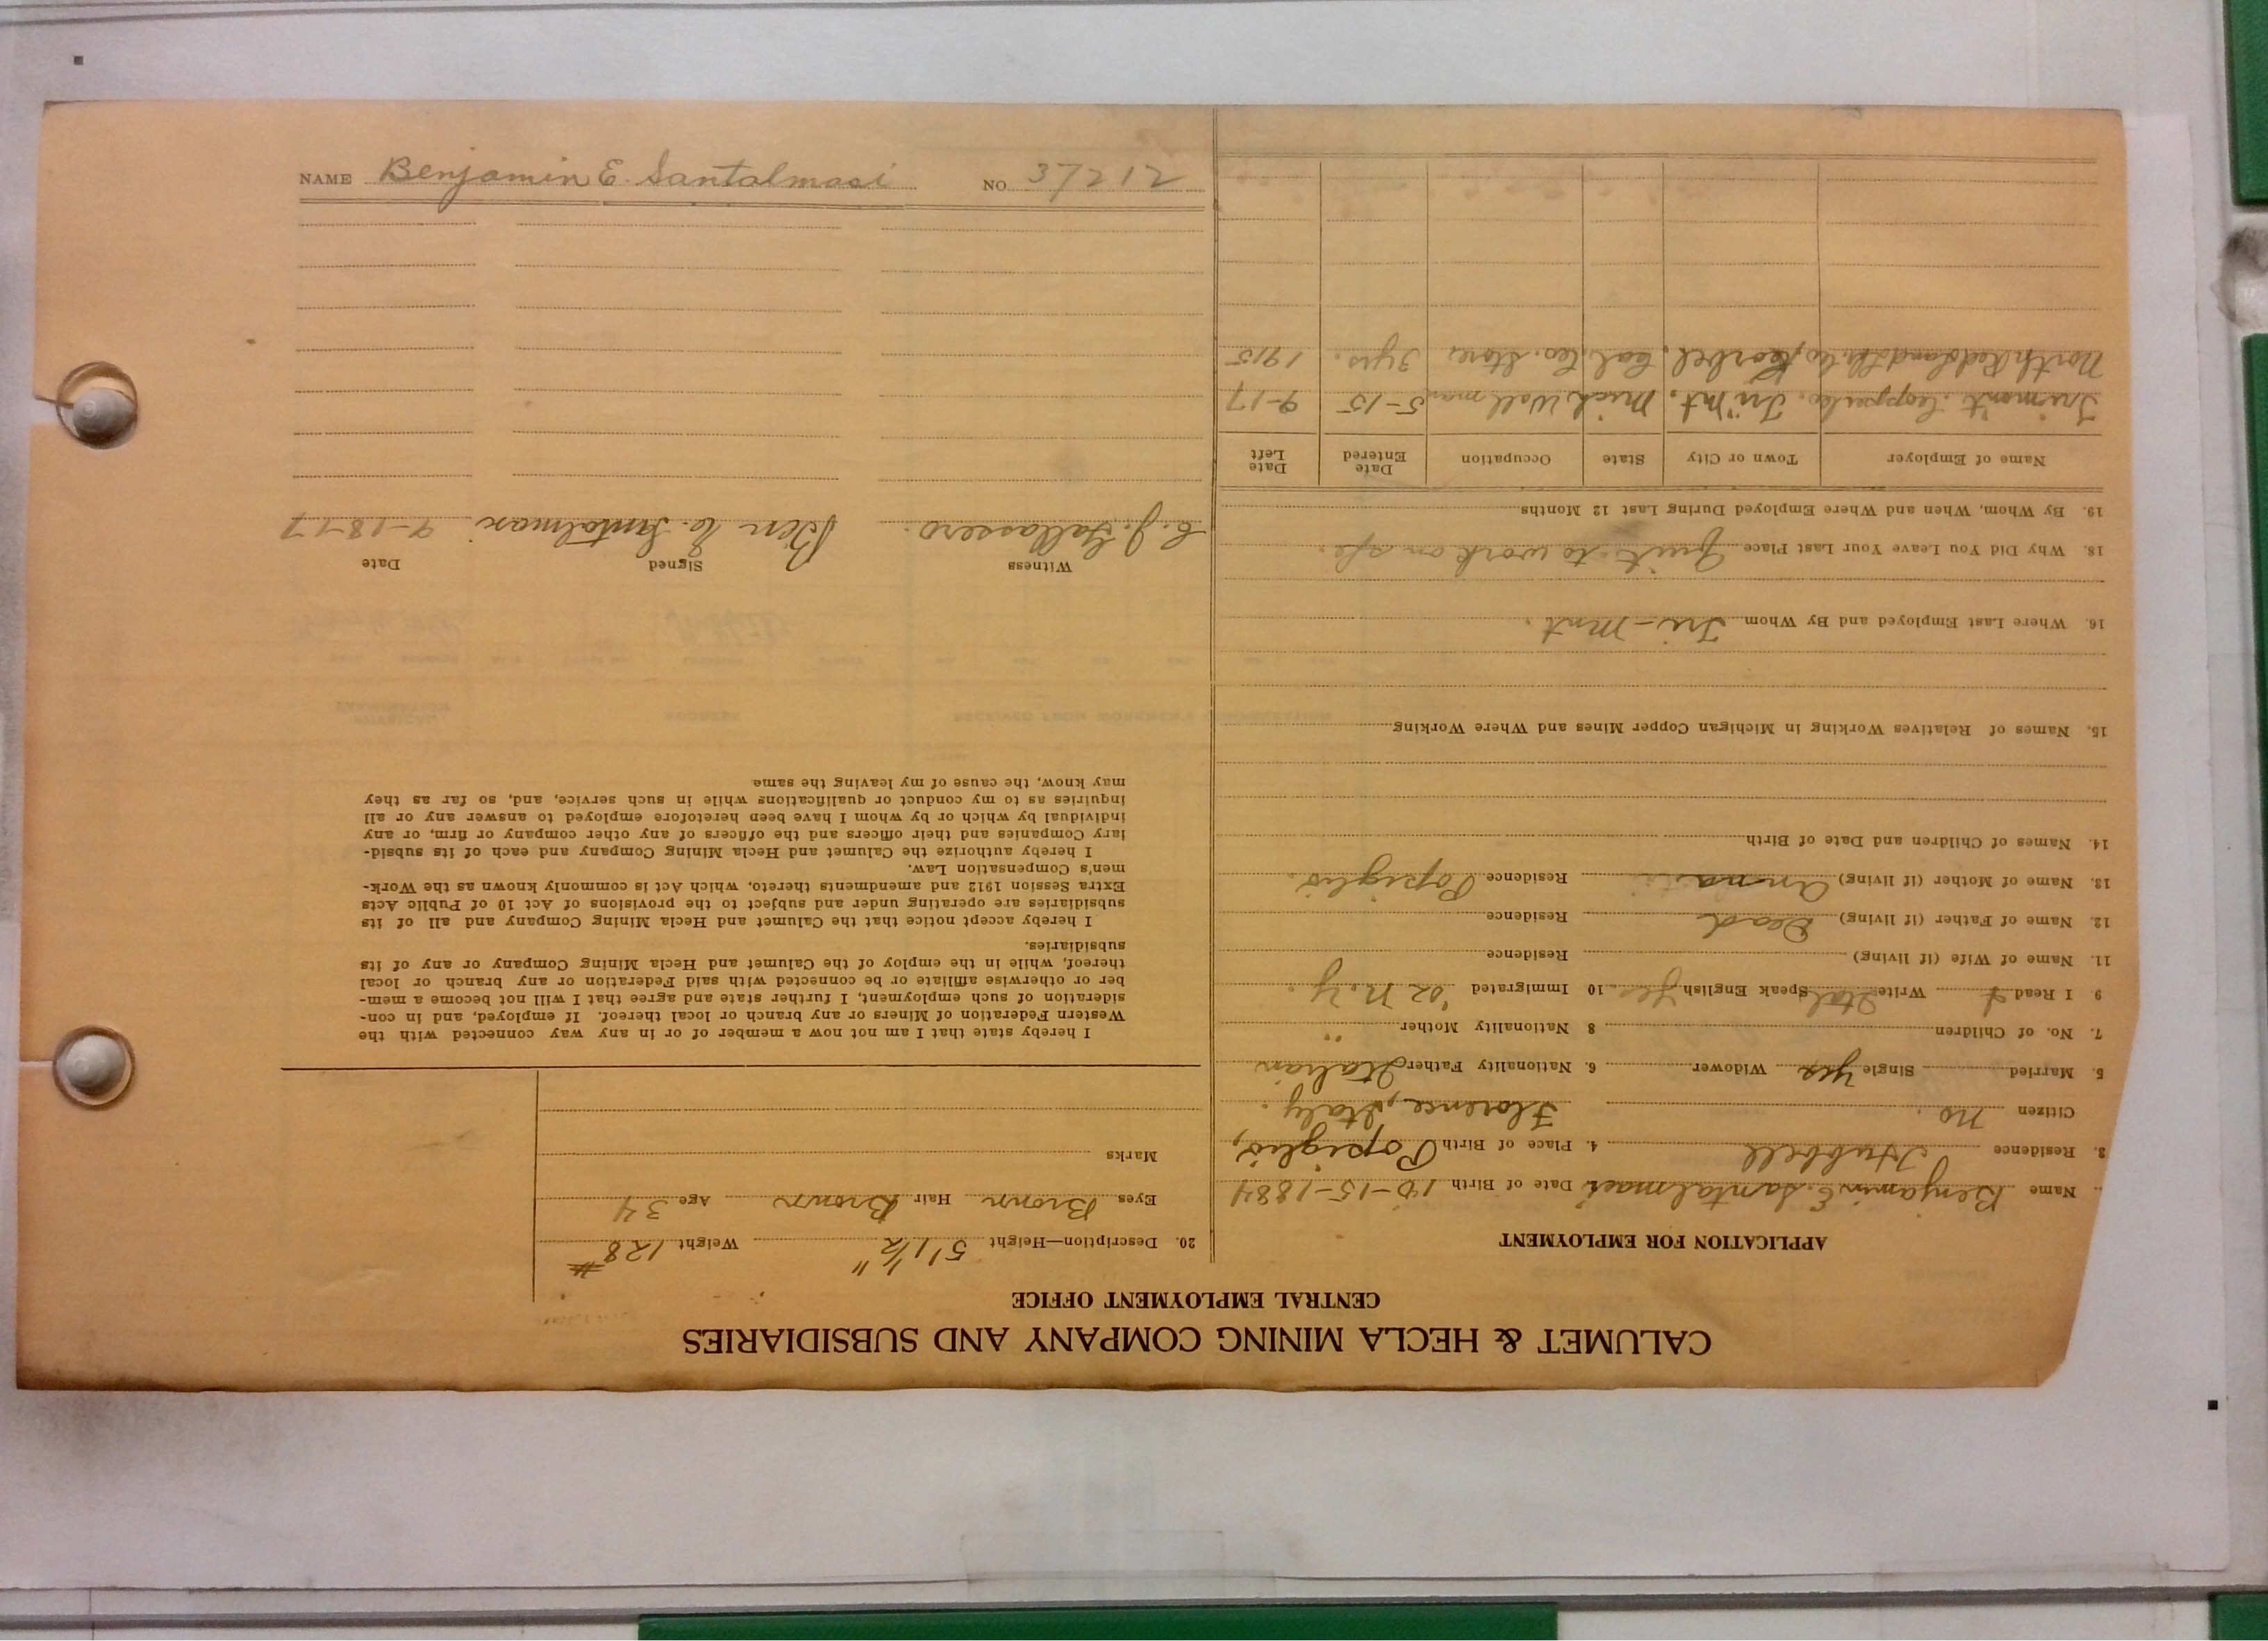 NAME Benjamin E. Santalmasi NO. 37212
CALUMET & HECLA MINING COMPANY AND SUBSIDIARIES
CENTRAL EMPLOYMENT OFFICE
APPLICATION FOR EMPLOYMENT
Name Benjamin E. Santalmasi Date of Birth 10-15-1884
3. Residence Hubbell 4. Place of Birth Popiglio,
Citizen no. Florence, Italy.
5. Married Single yes Widower 6. Nationality Father Italian
7. No. of Children 8 Nationality Mother "
9 I Read I Write Ital Speak English yes 10 Immigrated '02 N.Y.
11. Name of Wife (if living) Residence
12. Name of Father (if living) Dead Residence
13. Name of Mother (if living) Anna Residence Popiglio.
14. Names of Children and Date of Birth
15. Names of Relatives Working in Michigan Copper Mines and Where Working
16. Where Last Employed and By Whom Tri-Mnt.
18. Why Did You Leave Your Last Place Quit to work on sfc.
19. By Whom, When and Where Employed During Last 12 Months
Name of Employer Town or City State Occupation Date Entered Date Left
Trimont. Copper Co. Tri Mt. Mich Wall man 5-15 9-17
North Redland Co, Korbel, Cal. Co. Store 3 yrs. 1915
20. Description—Height 5' 1 1/2" Weight 128 #
Eyes Brown Hair Brown Age 34
Marks
I hereby state that I am not now a member of or in any way connected with the
Western Federation of Miners or any branch or local thereof. If employed, and in con-
sideration of such employment, I further state and agree that I will not become a mem-
ber or otherwise affiliate or be connected with said Federation or any branch or local
thereof, while in the employ of the Calumet and Hecla Mining Company or any of its
subsidiaries.
I hereby accept notice that the Calumet and Hecla Mining Company and all of its
subsidiaries are operating under and subject to the provisions of Act 10 of Public Acts
Extra Session 1912 and amendments thereto, which Act is commonly known as the Work-
men's Compensation Law.
I hereby authorize the Calumet and Hecla Mining Company and each of its subsid-
iary Companies and their officers and the officers of any other company or firm, or any
individual by which or by whom I have been heretofore employed to answer any or all
inquiries as to my conduct or qualifications while in such service, and, so far as they
may know, the cause of my leaving the same.
Witness Signed Date
C. J. Gallassero. Ben E. Santalmasi 9-18-17